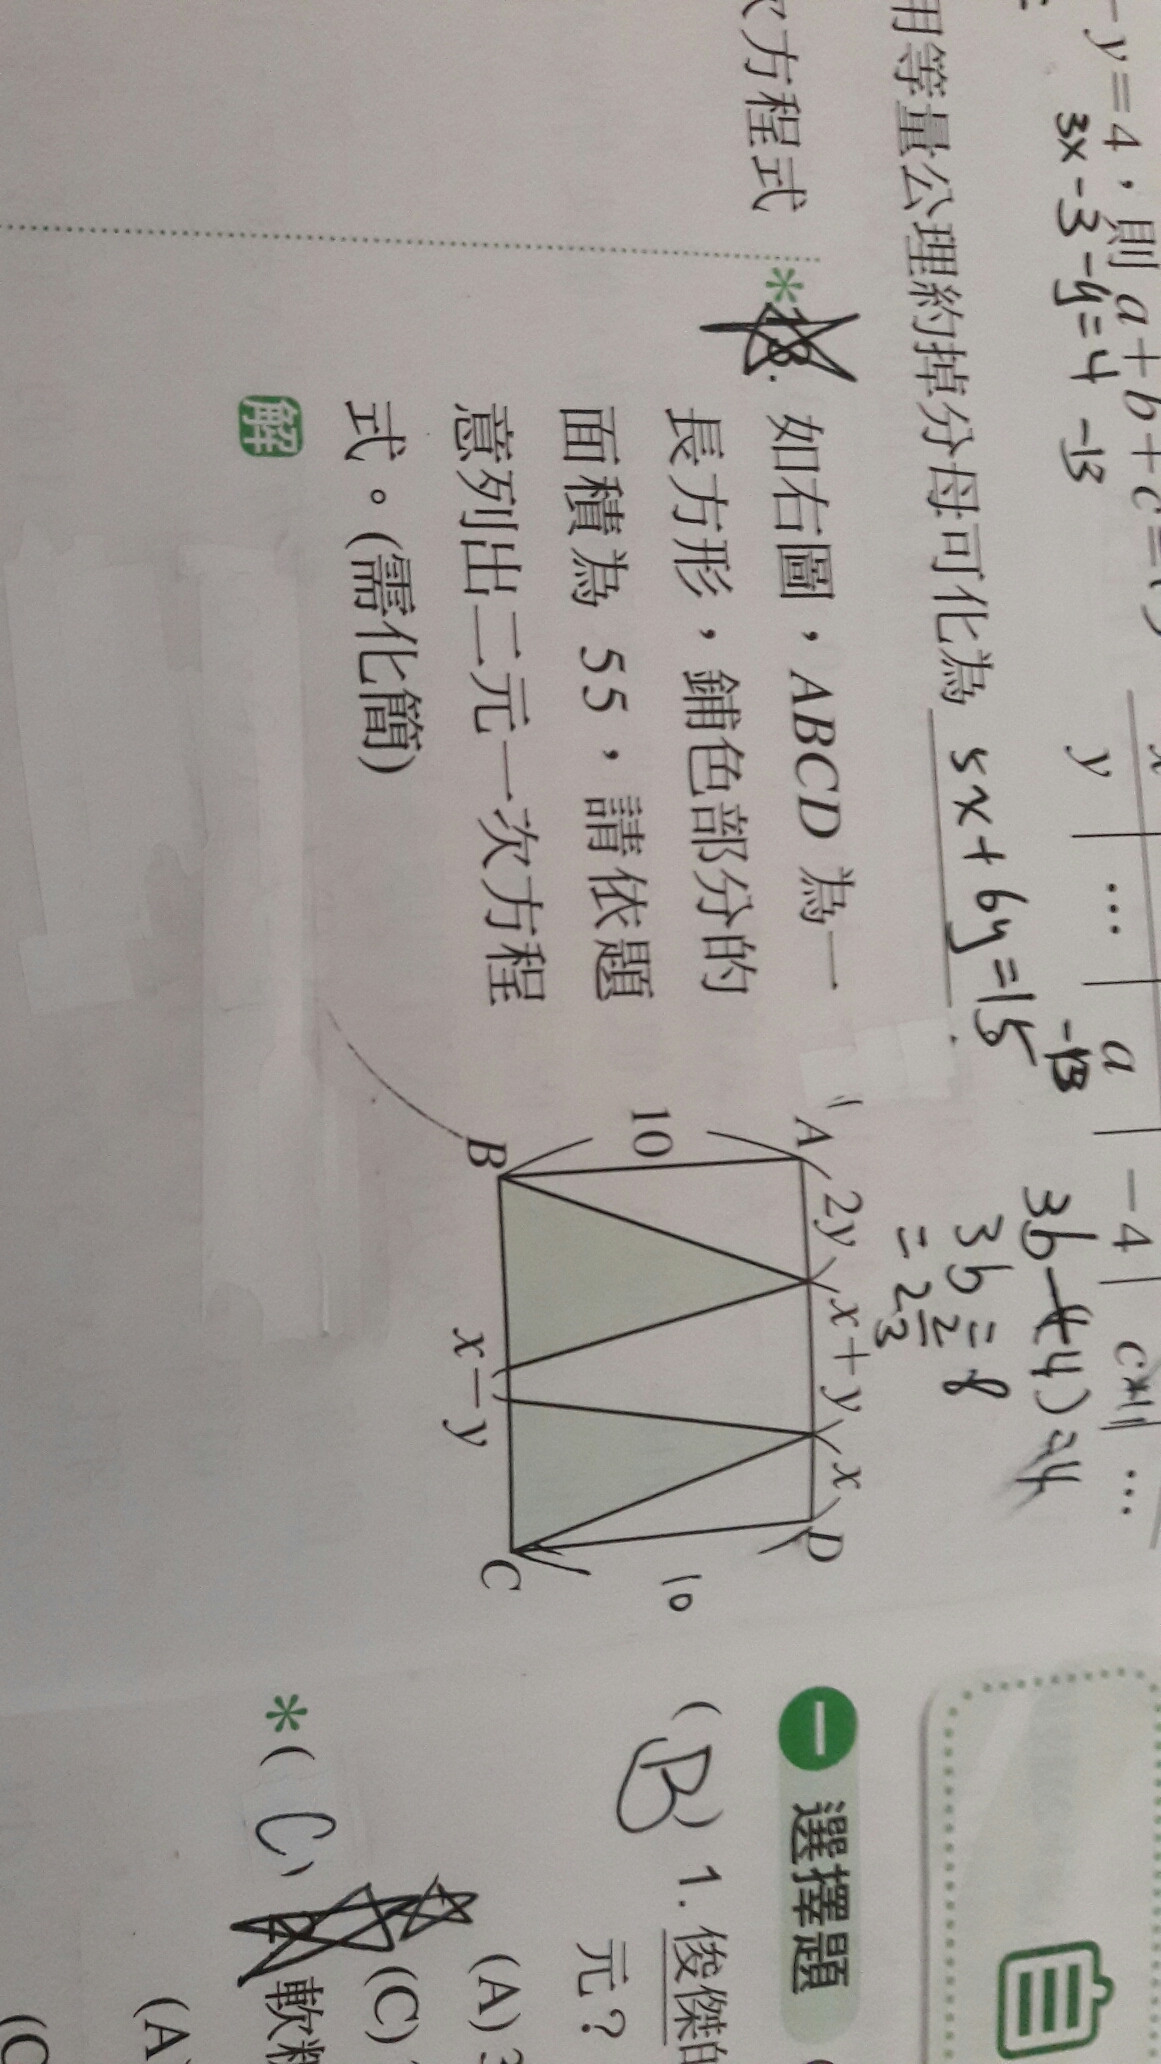 -y=4,則a+b+c=
3x-3-y=4 -13
x
y … a -4 c …
-13
11
3b-(-4)=4
3b=8
=2 2/3
用等量公理約掉分母可化為 5x+6y=15 .
次方程式
*18. 如右圖,ABCD 為一
長方形,鋪色部分的
面積為 55,請依題
意列出二元一次方程
式。(需化簡)
解
A 2y x+y x D
10 10
B x-y C
一 選擇題
( B ) 1. 俊傑的
元?
(A) 3
(C)
*( C )
軟
(A)
(C